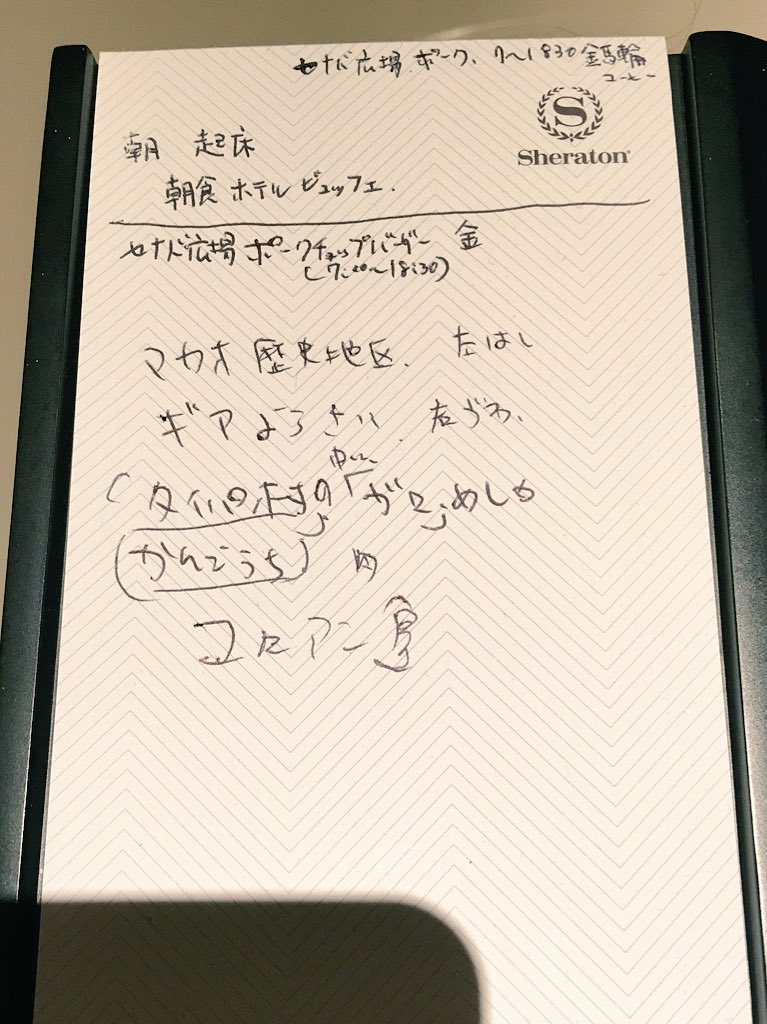 セナド広場 ポーク、7〜1830 金馬輪
コーヒー
S
Sheraton
朝 起床
朝食 ホテル ビュッフェ.
セナド広場 ポークチョップバーガー 金
(7:00〜18:30)
マカオ 歴史地区. 左はし
ギア ようさい. 左がわ.
(タイパ村の「が」めしか
かんこうち 内
コロアン島